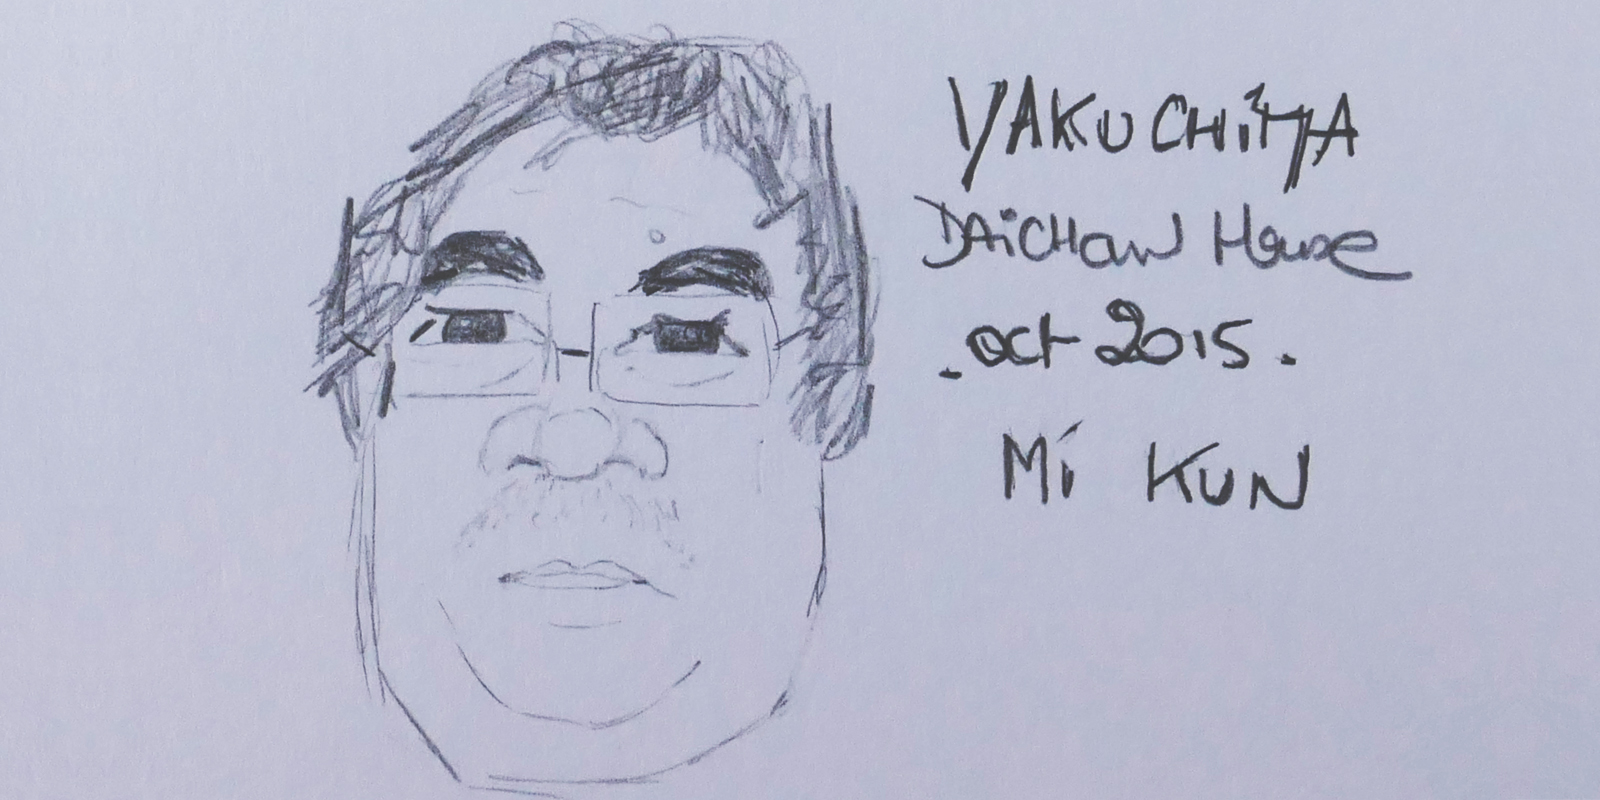 YAKUCHiMA
DAiCHAN House
. oct 2015 .
Mi KUN